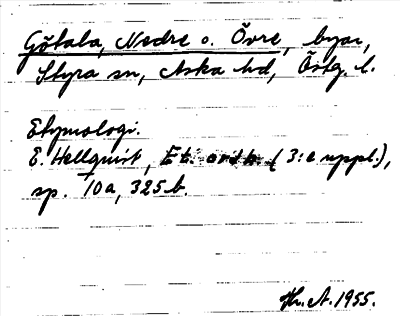 Götala, Nedre o. Övre, byar,
Styra sn, Aska hd, Östg. l.
Etymologi.
E. Hellquist, Et. ordb. (3:e uppl.),
sp. 10a, 325b.
1955.